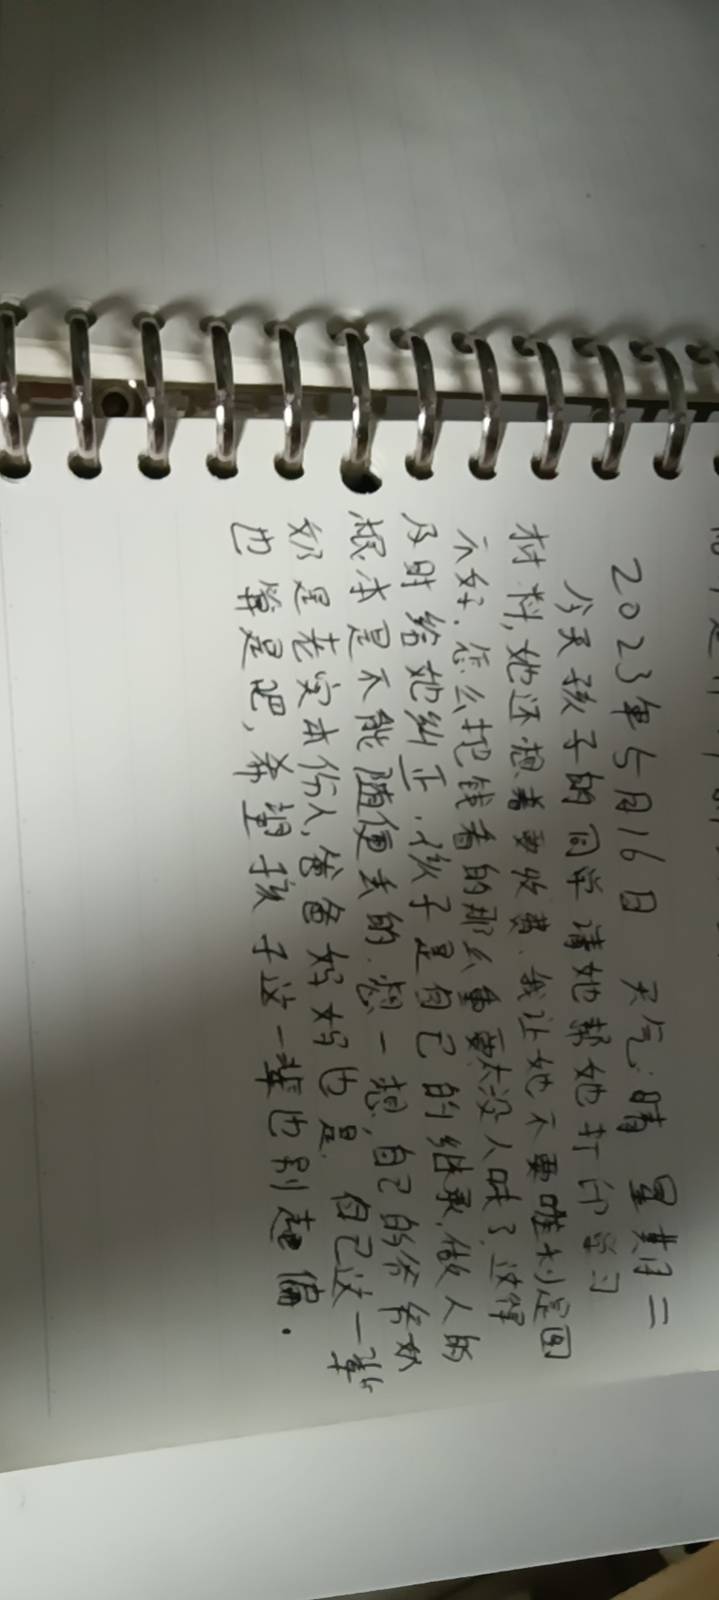 2023年5月16日 天气:晴 星期二
今天孩子的同学请她帮她打印学习
材料,她还想着要收费.我让她不要唯利是图
不好.怎么把钱看的那么重要太没人味了.这得
及时给她纠正.孩子是自己的继承.做人的
根本是不能随便丢的.想一想,自己的爷爷奶
奶是老实本份人,爸爸妈妈也是.自己这一辈
也算是吧,希望孩子这一辈也别走偏.